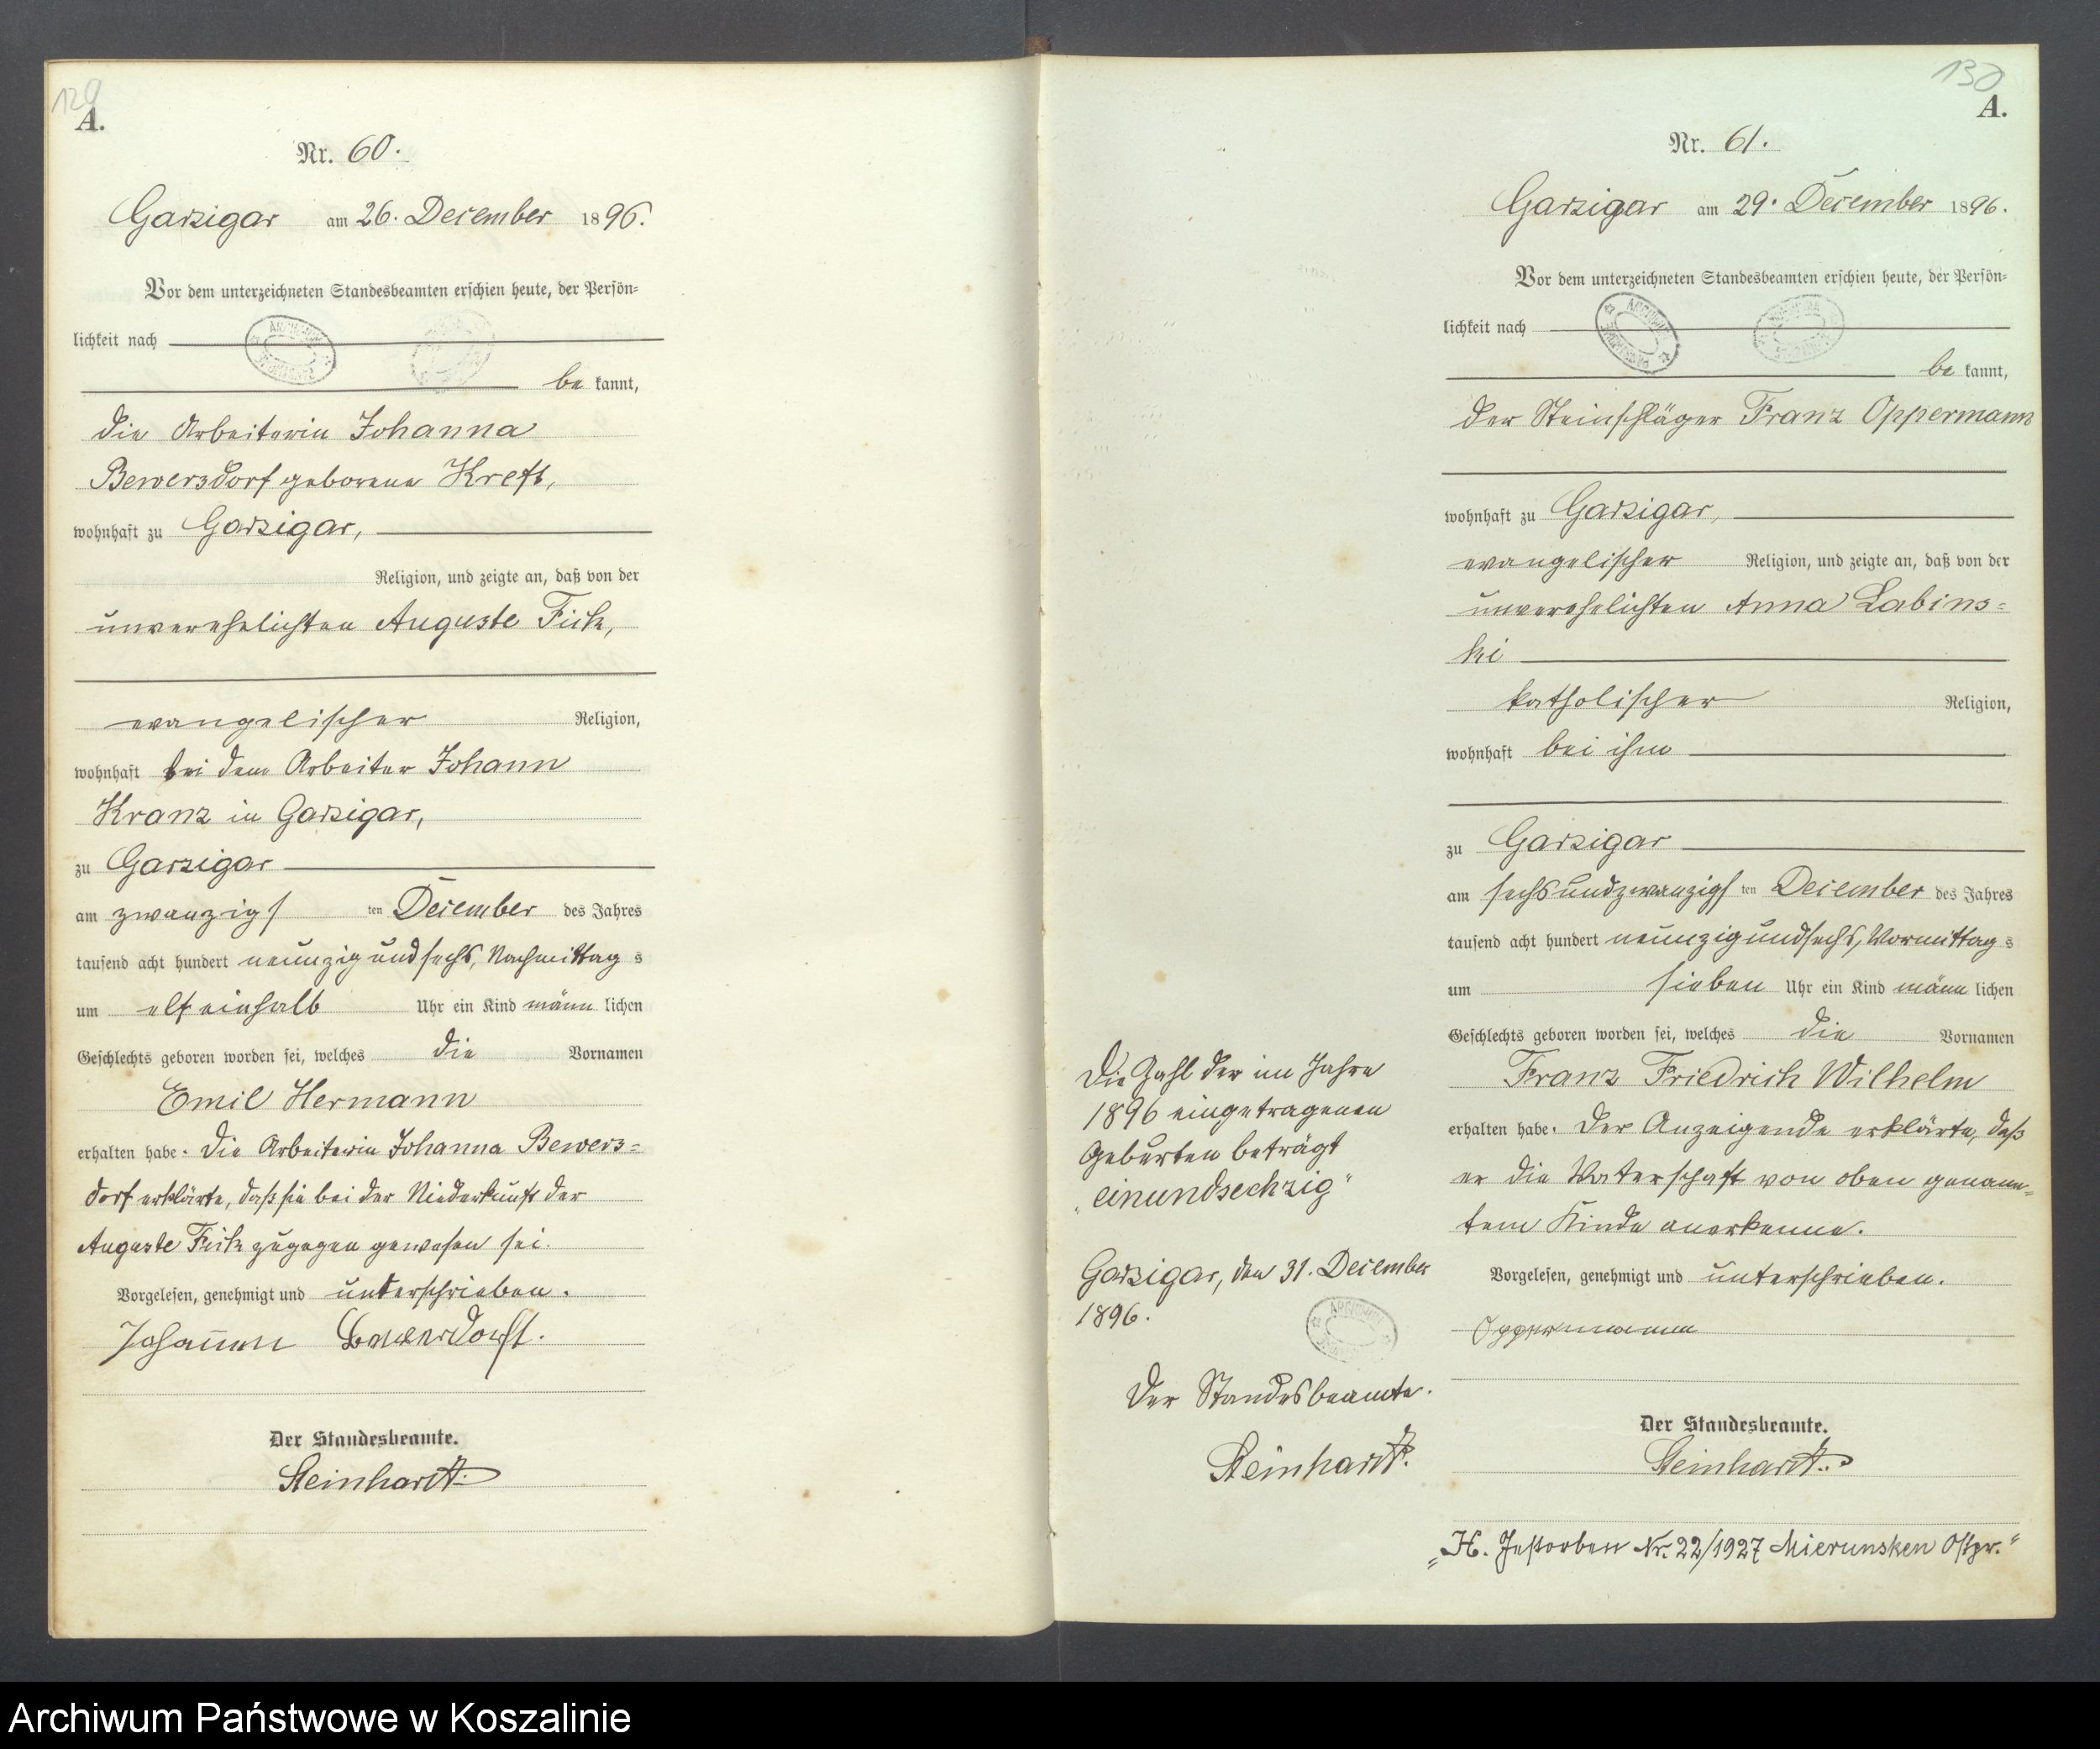 129
A.
Nr. 60.
Garzigar am 26. December 1896.
Vor dem unterzeichneten Standesbeamten erschien heute, der Persön-
lichkeit nach
be kannt,
die Arbeiterin Johanna
Bewersdorf geborene Kreft,
wohnhaft zu Garzigar,
Religion, und zeigte an, daß von der
unverehelichten Auguste Fick,
evangelischer Religion,
wohnhaft bei dem Arbeiter Johann
Kranz in Garzigar,
zu Garzigar
am zwanzigs ten December des Jahres
tausend acht hundert neunzig und sechs, Nachmittag s
um elf einhalb Uhr ein Kind männ lichen
Geschlechts geboren worden sei, welches die Vornamen
Emil Hermann
erhalten habe. Die Arbeiterin Johanna Bewers-
dorf erklärte, daß sie bei der Niederkunft der
Auguste Fick zugegen gewesen sei.
Vorgelesen, genehmigt und unterschrieben.
Johanna
Der Standesbeamte.
Steinhardt.
130
A.
Nr. 61.
Garzigar am 29. December 1896.
Vor dem unterzeichneten Standesbeamten erschien heute, der Persön-
lichkeit nach
be kannt,
der Steinschläger Franz Oppermann
wohnhaft zu Garzigar,
evangelischer Religion, und zeigte an, daß von der
unverehelichten Anna Labins-
ki
katholischer Religion,
wohnhaft bei ihm
zu Garzigar
am sechsundzwanzigs ten December des Jahres
tausend acht hundert neunzig und sechs, Vormittag s
um sieben Uhr ein Kind männ lichen
Geschlechts geboren worden sei, welches die Vornamen
Franz Friedrich Wilhelm
erhalten habe. Der Anzeigende erklärte, daß
er die Vaterschaft von oben genann-
tem Kinde anerkenne.
Vorgelesen, genehmigt und unterschrieben.
Oppermann
Der Standesbeamte.
Steinhardt.
„H. Gestorben Nr. 22/1927 Mierunsken Ostpr."
Die Zahl der im Jahre
1896 eingetragenen
Geburten beträgt
„einundsechzig"
Garzigar, den 31. December
1896.
Der Standesbeamte.
Steinhardt.
Archiwum Państwowe w Koszalinie